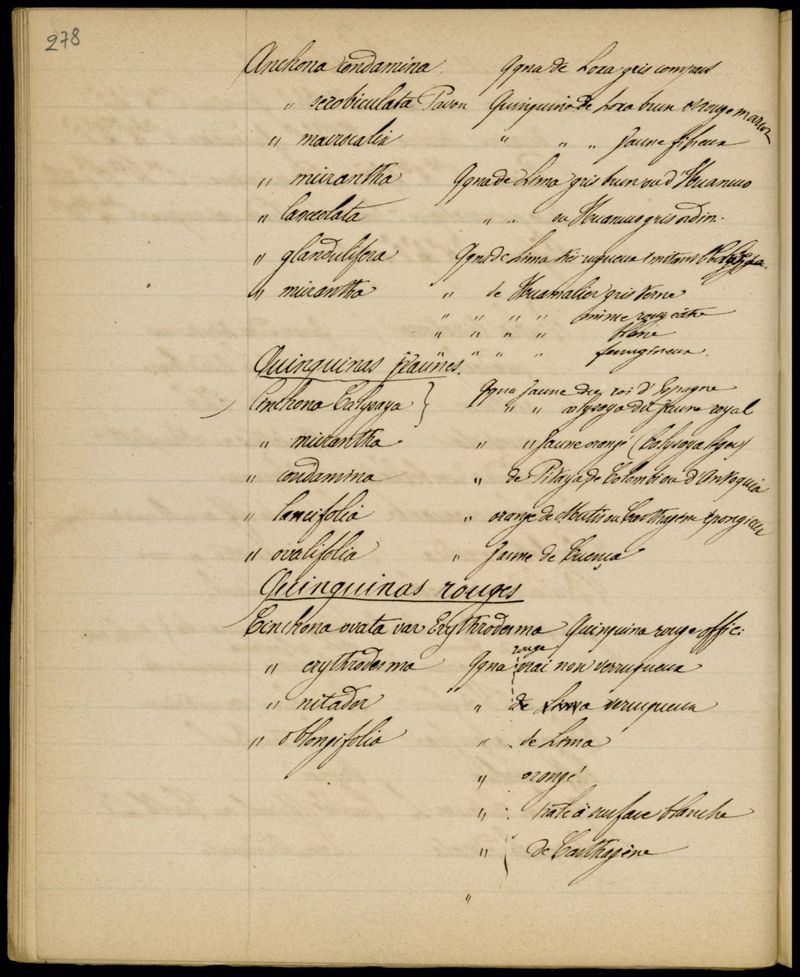 278
Cinchona condamina Qqna de Loxa gris compact
" scrobiculata Pavon Quinquina de Loxa brun et rouge marron
" macrocalix " " " jaune fibreux
" micrantha Qqna de Lima gris brun ou d'Huanuco
" lanceolata " " ou Huanuco gris ordin.
" glandulifera Qqna de Lima très rugueux imitant
" micrantha " de Huamalies gris terne
" " " " mince rougeâtre
" " " " blanc
" " " ferrugineux.
Quinquinas jaunes.
Cinchona Calysaya } Qqna jaune du roi d'Espagne
" " calysaya dit jaune royal
" micrantha " " jaune orangé (Calysaya léger)
" condamina " de Pitaya de Colombie ou d'Antioquia
" lancifolia " orangé de Mutis ou Carthagène spongieux
" ovalifolia " jaune de Cuença
Quinquinas rouges
Cinchona ovata var Erythroderma Quinquina rouge offic:
" erythroderma Qqna rouge vrai non verruqueux
" nitador " de verruqueux
" oblongifolia " de Lima
" orangé
" pâle à surface blanche
" de Carthagène
"